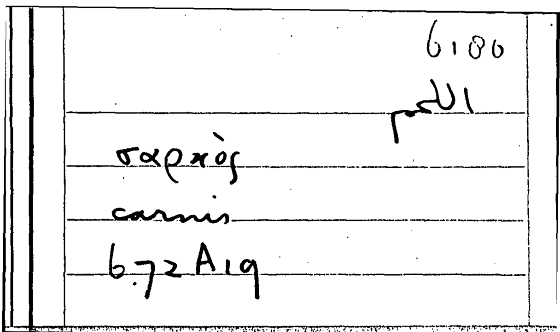 6180
σαρκὸς
carnis
6.72 A19